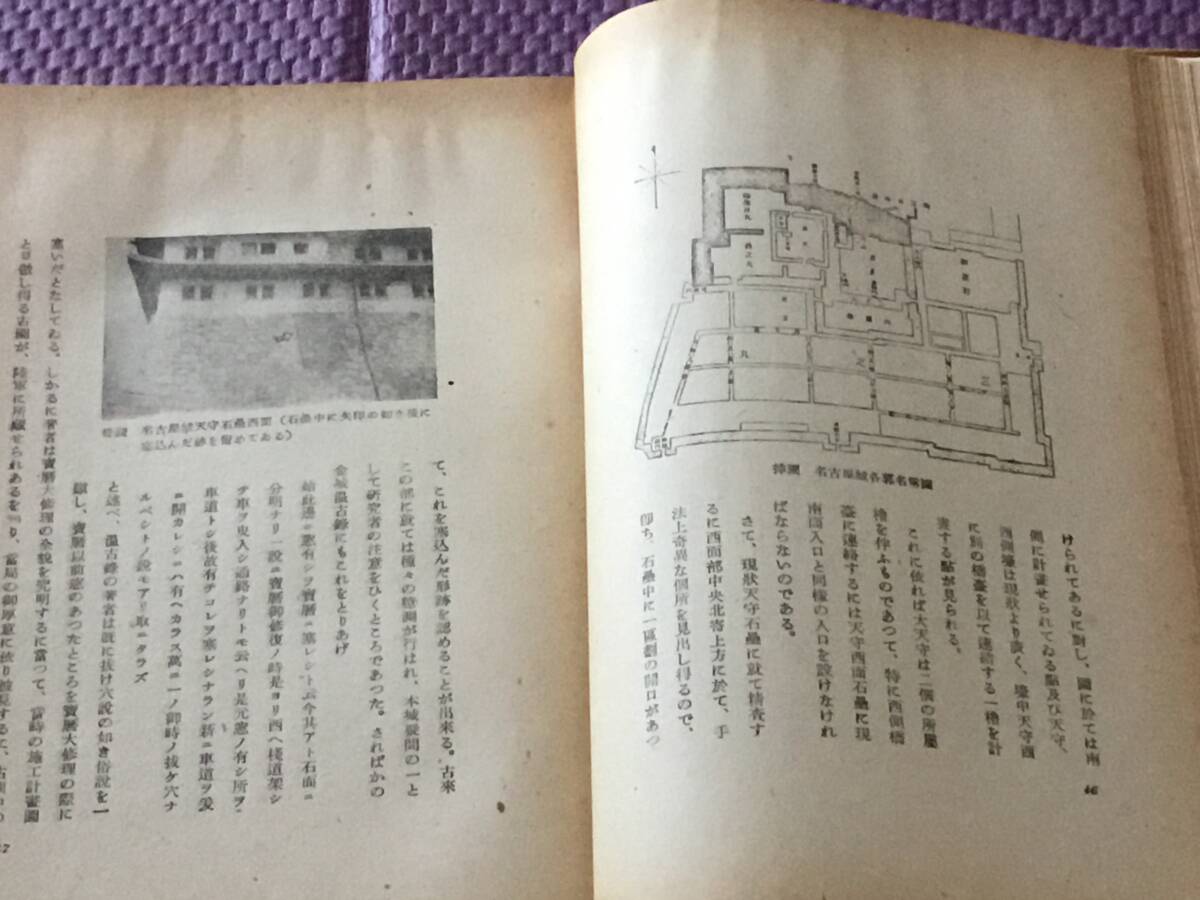 けられてあるに對し、圖に於ては南
側に計畫せられてゐる點及び天守、
西側壕は現狀より廣く、壕中天守西
に別の橋臺を以て連結する一櫓を計
畫する點が見られる。
これに依れば大天守は二個の所屬
櫓を伴ふものであつて、特に西側橋
臺に連絡するには天守西面石壘に現
南面入口と同樣の入口を設けなけれ
ばならないのである。
さて、現狀天守石壘に就て精査す
るに西面部中央北寄上方に於て、手
法上奇異な個所を見出し得るので、
卽ち、石壘中に一區劃の開口があつ
挿圖 名古屋城各郭名稱圖
三之丸
46
て、これを塞込んだ形跡を認めることが出來る。古來
この部に就ては種々の臆測が行はれ、本城疑問の一と
して硏究者の注意をひくところであつた。さればかの
金城溫古錄にもこれをとりあげ
始此邊ニ窓有シヲ寶曆ニ塞レシト云今其アト石面ニ
分明ナリ一說ニ寶曆御修復ノ時是ヨリ西ヘ棧道架シ
テ車ヲ曳入シ通路ナリトモ云ヘリ是元窓ノ有シ所ヲ
車道トシ後故有テコレヲ塞レシナラン新ニ車道ヲ
ニ開カレシニハ有ヘカラス萬ニ一ノ御時ノ拔ケ穴ナ
ルベシトノ說モアリ取ニタラズ
と述べ、溫古錄の著者は旣に拔け穴說の如き俗說を一
蹴し、寶曆以前窓のあつたところを寶曆大修理の際に
塞いだとなしてゐる。しかるに著者は寶曆大修理の全貌を究明するに當つて、當時の施工計畫圖
と目し得る古圖が、陸軍に所藏せられあるを知り、當局の御厚意に依り被見するに、
挿圖 名古屋城天守石壘西面(石壘中に矢印の如き後に
塞込んだ跡を留めてゐる)